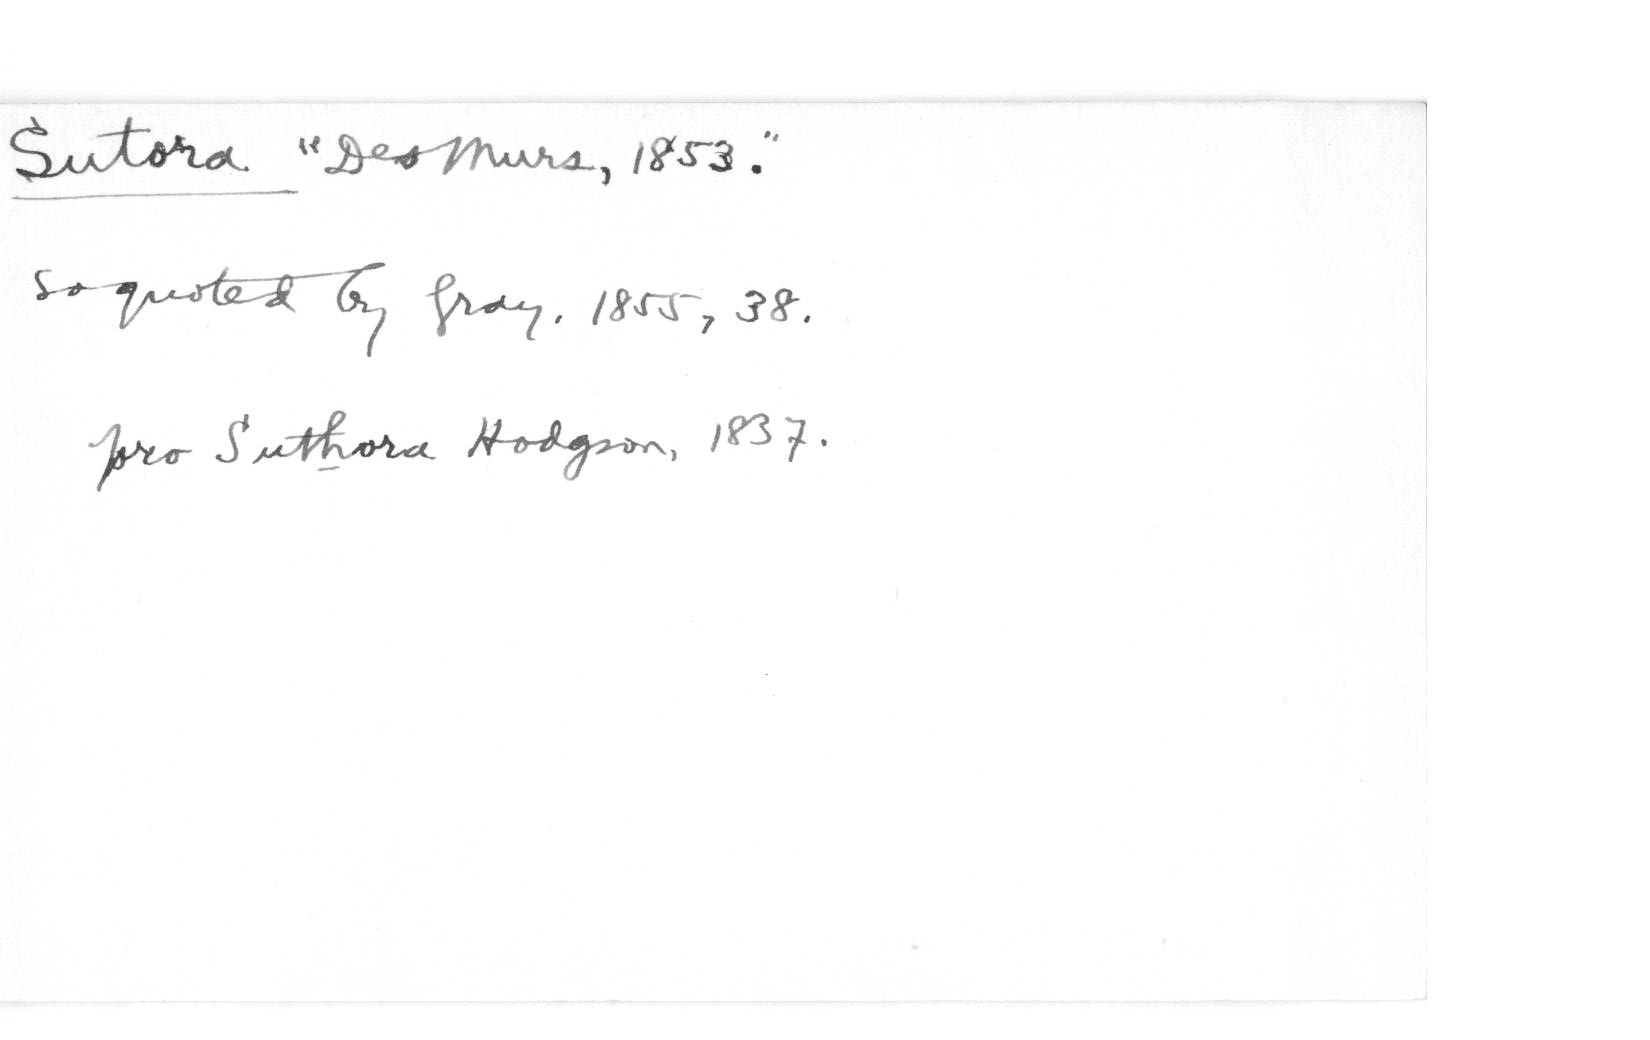 Sutora "Des Murs, 1853."
so quoted by Gray. 1855, 38.
pro Suthora Hodgson, 1837.